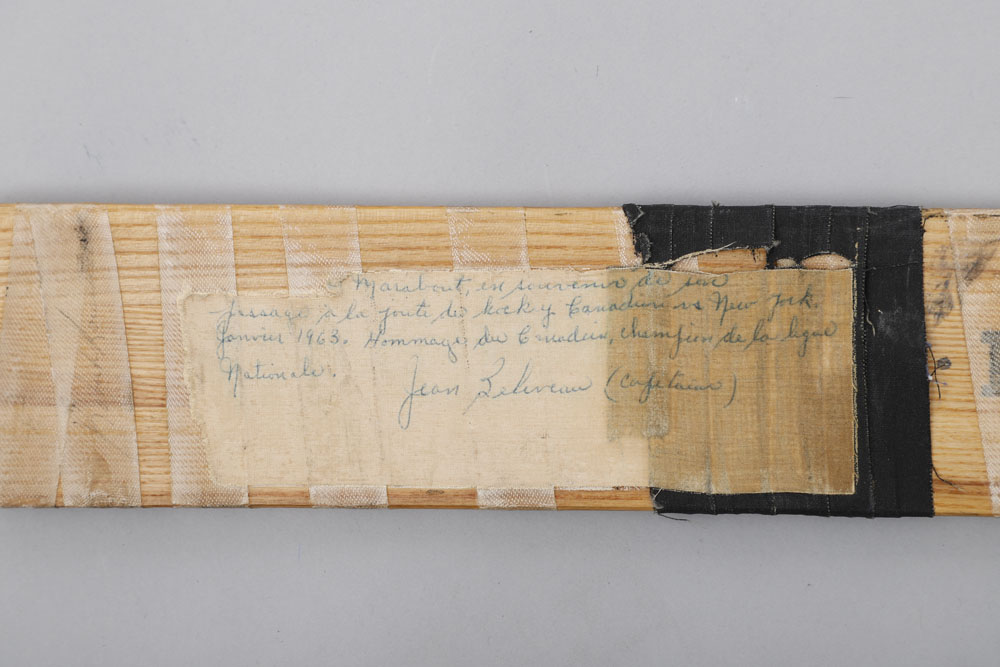 Marabout, en souvenir de son
passage à la joute de hockey Canadien vs New York.
Janvier 1963. Hommage du Canadien, champion de la ligue
Nationale.
Jean Beliveau (Capitaine)